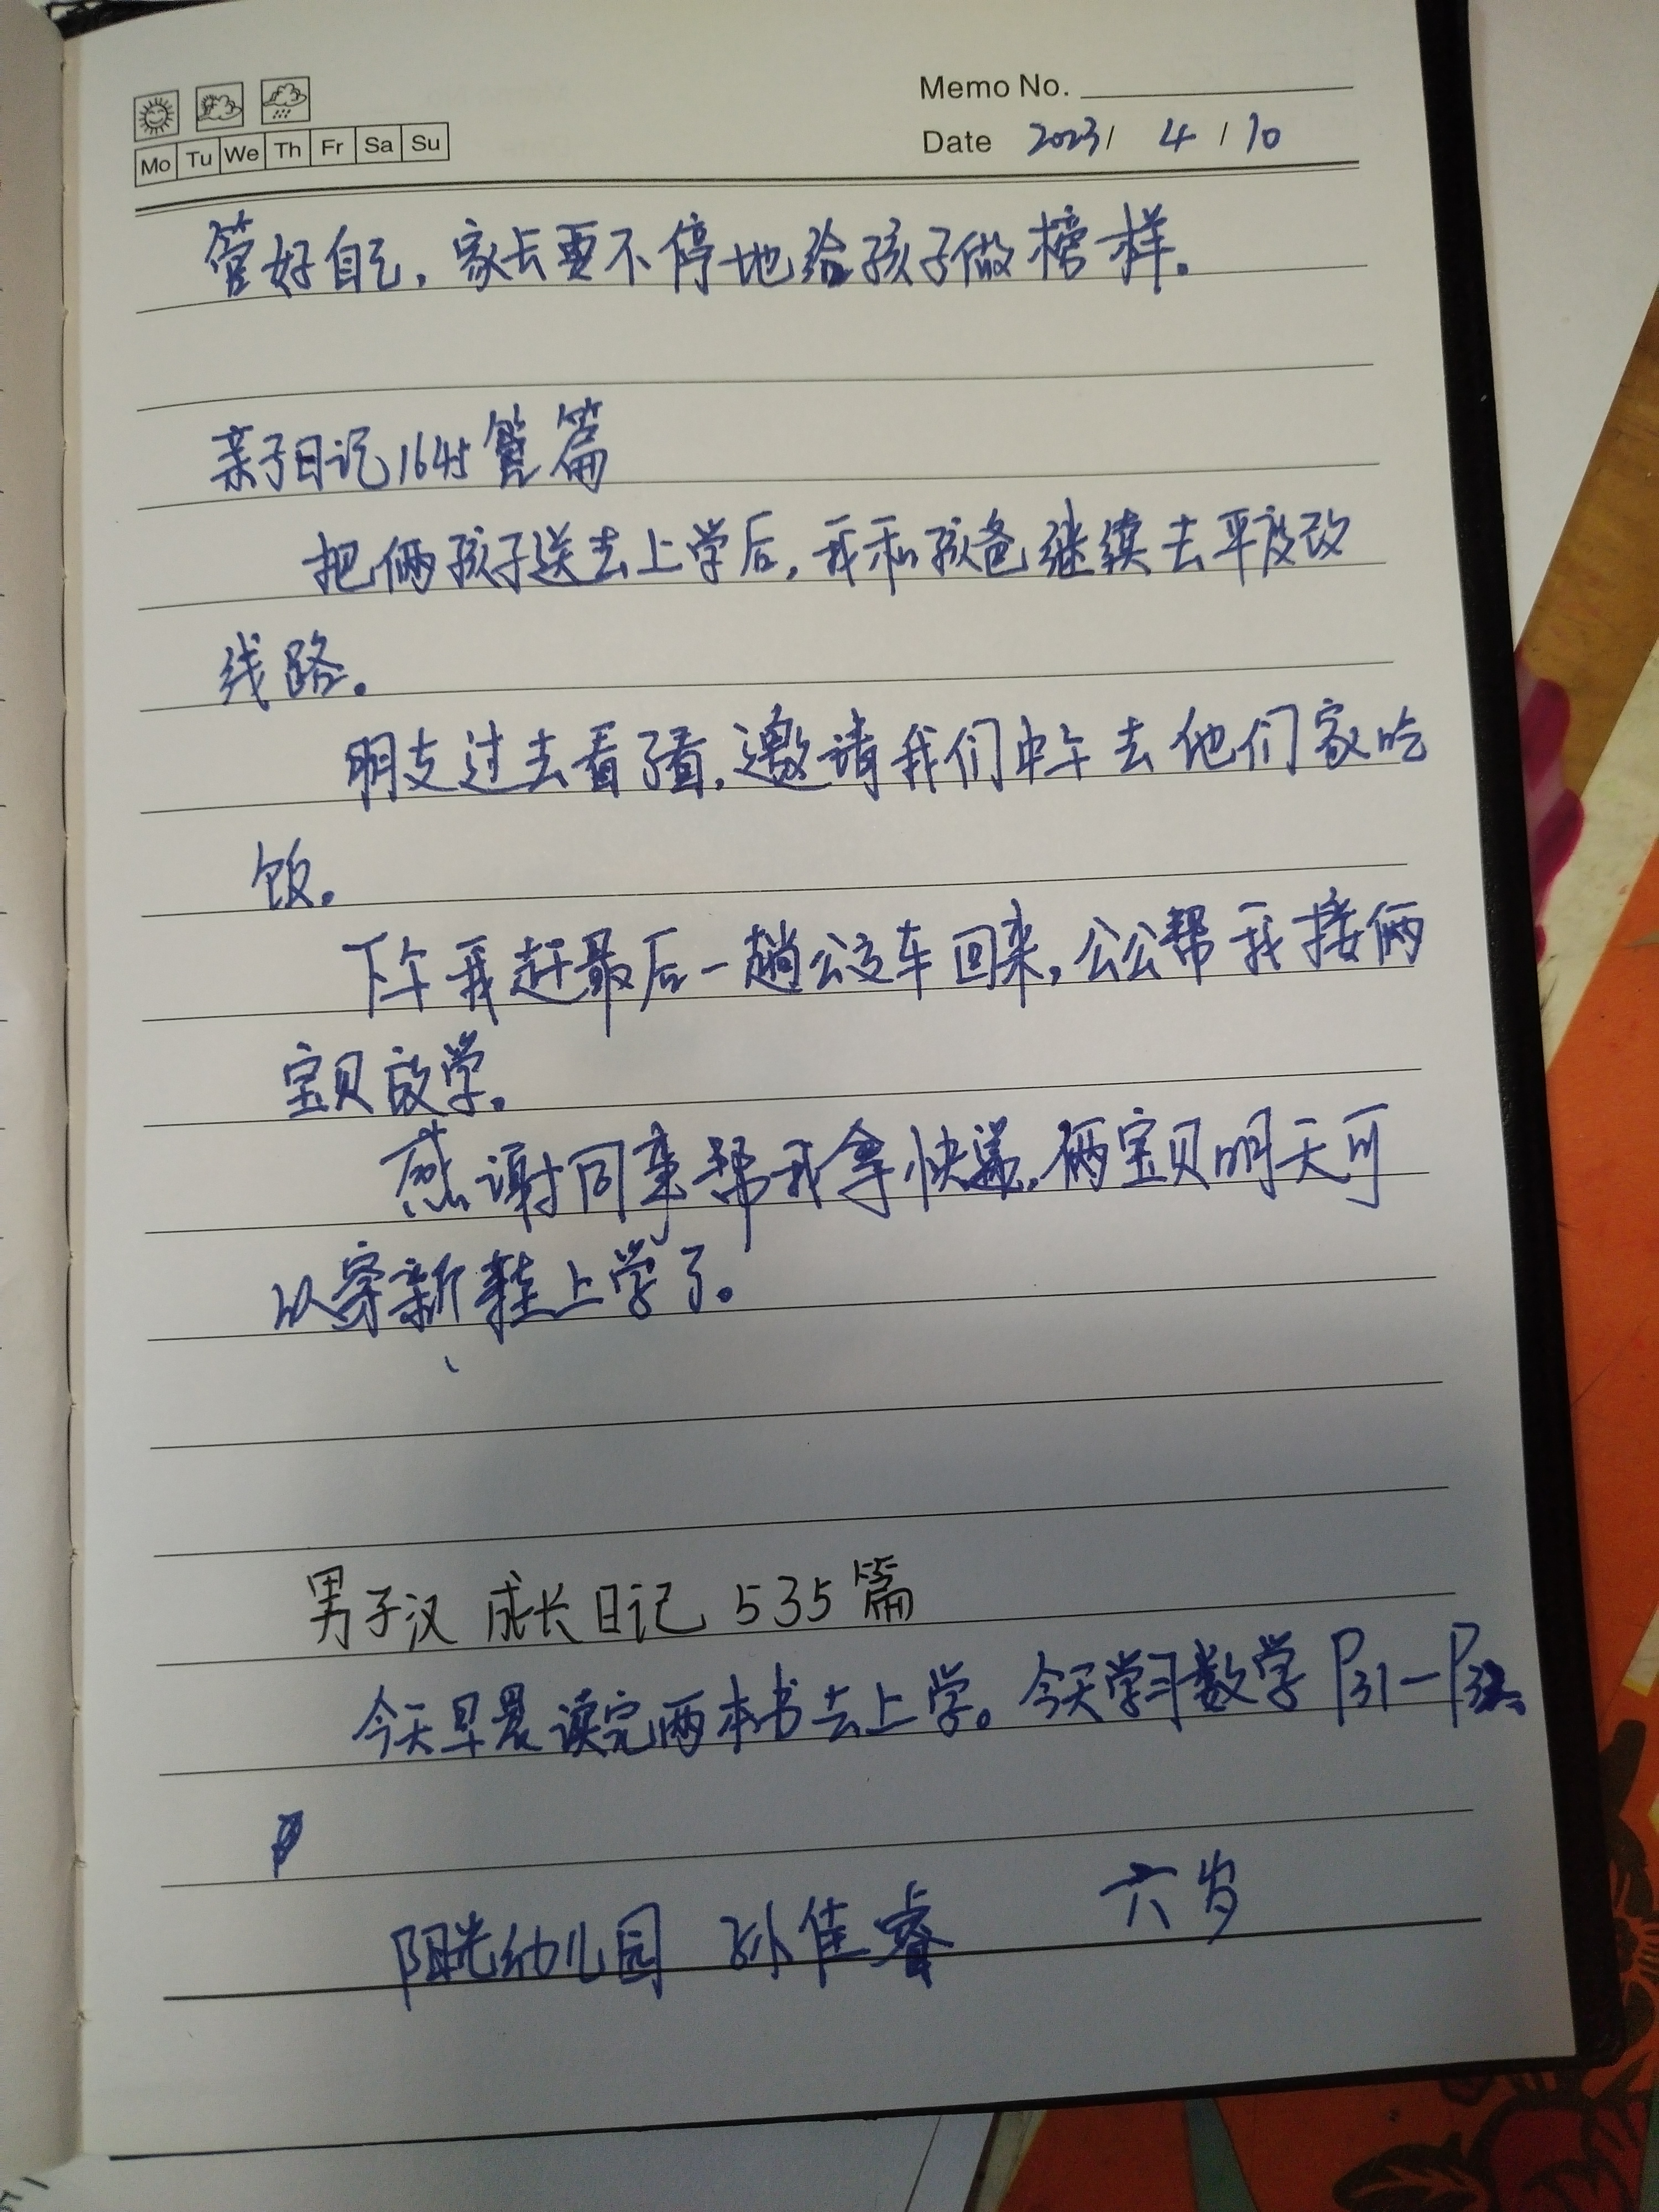 Memo No.
Mo Tu We Th Fr Sa Su
Date 2023/ 4 / 10
管好自己，家长要不停地给孩子做榜样。
亲子日记1645篇
把俩孩子送去上学后，我和孩爸继续去平度改
线路。
明支过去看了看，邀请我们中午去他们家吃
饭。
下午我赶最后一趟公交车回来，公公帮我接俩
宝贝放学。
感谢同事帮我拿快递，俩宝贝明天可
以穿新鞋上学了。
男子汉 成长日记 535篇
今天早晨读完两本书去上学。今天学习数学 P31-
阳光幼儿园 孙佳睿 六岁